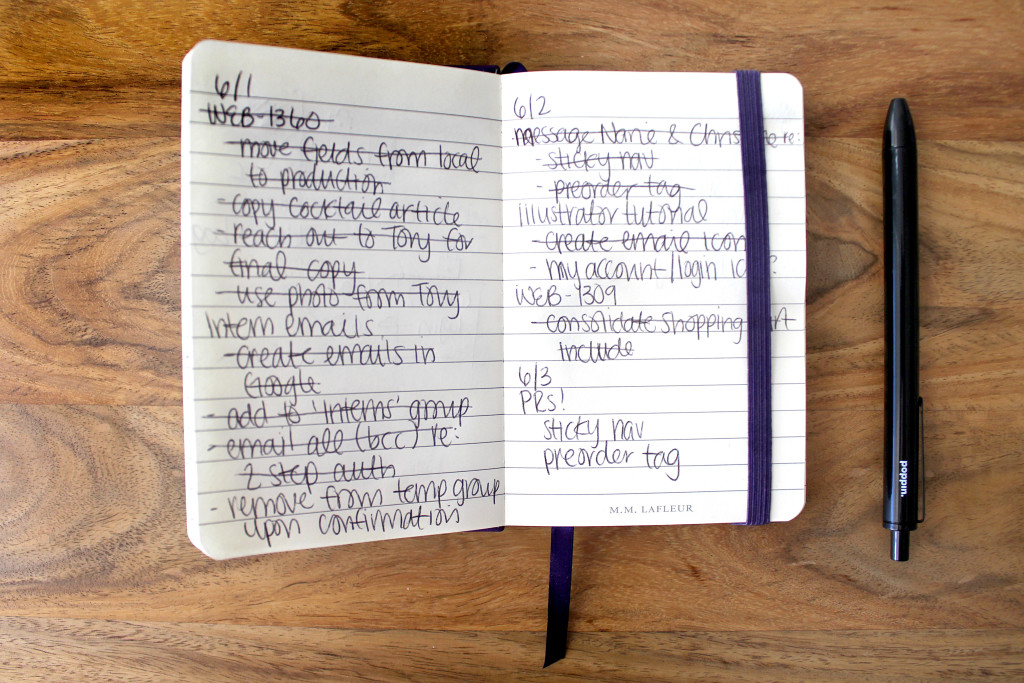 6/1
WEB-1360
- move fields from local
to production
- copy cocktail article
- reach out to Tory for
final copy
- use photo from Tory
Intern emails
- create emails in
Google
- add to 'interns' group
- email all (bcc) re:
2 step auth
- remove from temp group
upon confirmation
6/2
message Narie & Chris re:
- sticky nav
- preorder tag
illustrator tutorial
- create email icon
- my account/login ?
WEB-1309
- consolidate shopping
include
6/3
PRs!
sticky nav
preorder tag
M.M. LAFLEUR
poppin.